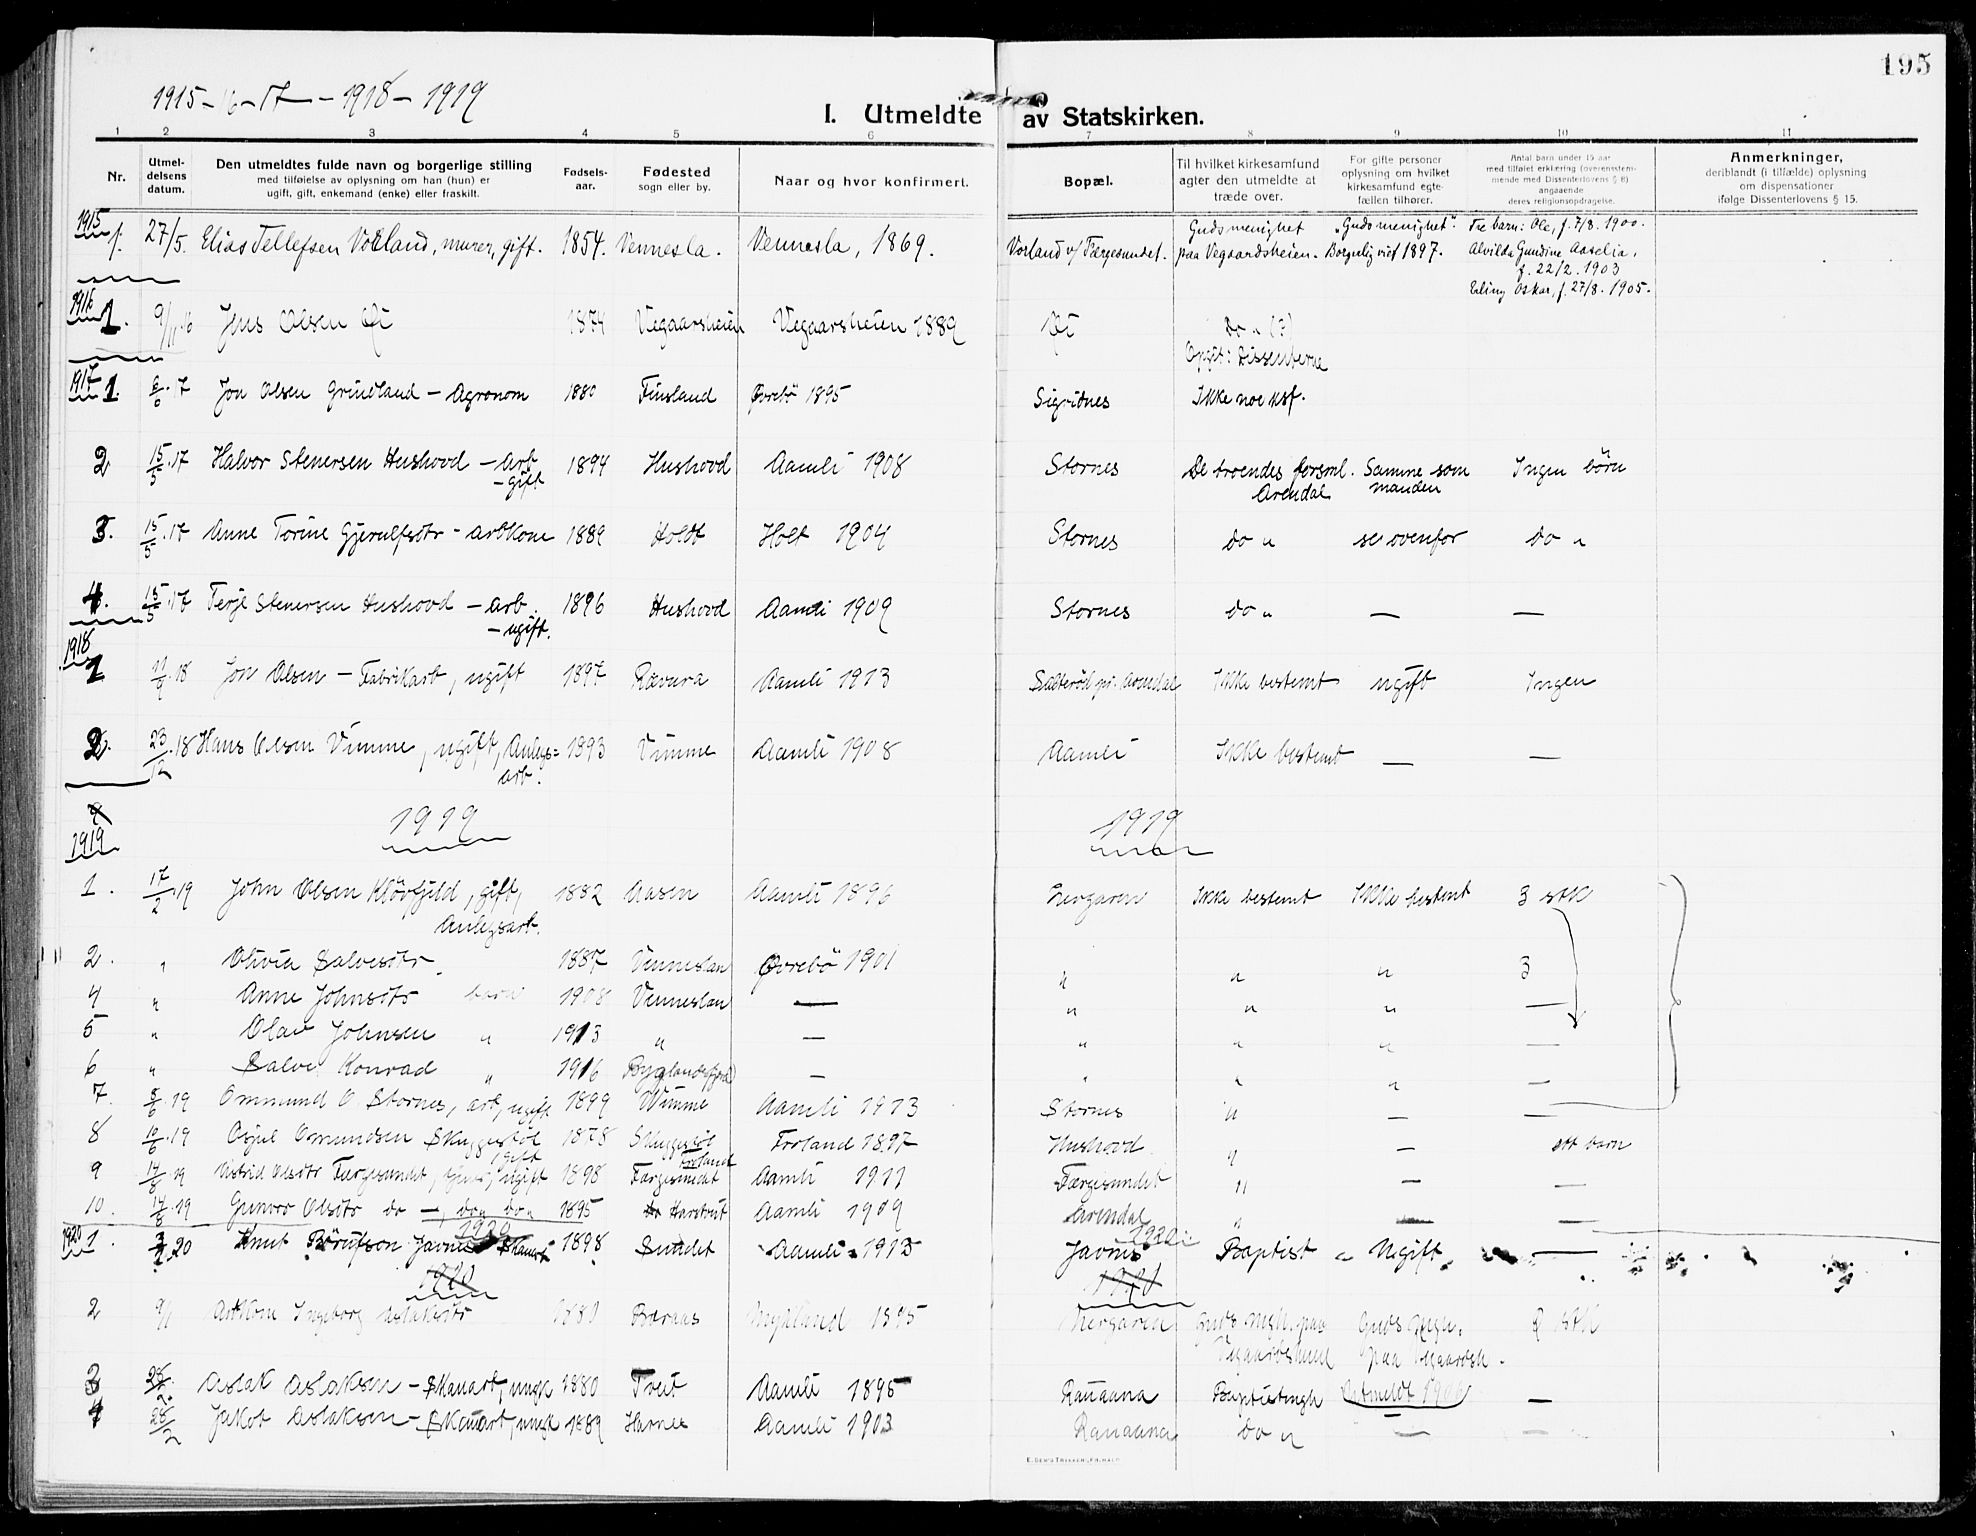 195
1915 - 16 - 17 - 1918 - 1919
I. Utmeldte av Statskirken.
1 2 3 4 5 6 7 8 9 10 11
Nr.
Utmel-
delsens
datum.
Den utmeldtes fulde navn og borgerlige stilling
med tilføielse av oplysning om han (hun) er
ugift, gift, enkemand (enke) eller fraskilt.
Fødsels-
aar.
Fødested
sogn eller by.
Naar og hvor konfirmert.
Bopæl.
Til hvilket kirkesamfund
agter den utmeldte at
træde over.
For gifte personer
oplysning om hvilket
kirkesamfund egte-
fællen tilhører.
Antal barn under 15 aar
med tilføiet erklæring (overensstem-
mende med Dissenterlovens § 8)
angaaende
deres religionsopdragelse.
Anmerkninger,
deriblandt (i tilfælde) oplysning
om dispensationer
ifølge Dissenterlovens § 15.
1915
1. 27/5. Elias Tellefsen Vorland, murer, gift. 1854. Vennesla. Vennesla, 1869. Vorland v/ Færgesundet. Guds menighet paa Vegaardsheien. "Guds menighet". Borgerlig viet 1897. Tre barn: Ole, f. 7/8. 1900.
Alvilda Gundine Aaselia,
f. 22/2. 1903
Erling Oskar, f. 27/8. 1905.
1916
1. 9/11 16 Jens Olsen 1874 Vegaarsheien Vegaarsheien 1889 Do " (?)
Opgit: Dissenterne
1917
1. 6/6 17 Jon Olsen Grindland - Agronom 1880 Finsland Øvrebö 1895 Sigridnes Ikke noe ksf.
2 15/5 17 Halvor Stenersen Hushovd - arb - gift 1894 Hushovd Aamli 1908 Stornes De troendes forsml. Arendal Samme som manden Ingen börn
3. 15/5 17 Anne Torine Gjerulfsdtr - arbkone 1889 Holdt Holt 1904 Stornes do " se ovenfor do "
4. 15/5 17 Terje Stenersen Hushovd - arb. - ugift. 1896 Hushovd Aamli 1909 Stornes do " — —
1918
1 11/9 18 Jon Olsen - Fabrikarb, ugift 1897 Rævura Aamli 1913 Saltrød pr. Arendal Ikke bestemt ugift Ingen
2. 23/12 18 Hans Olsen Vimme, ugift, Anlegs=
arb. 1893 Vimme Aamli 1908 Aamli Ikke bestemt — —
1919 1919 1919
1. 17/2 19 John Olsen Klövfjeld, gift,
Anlegsarb. 1882 Aasen Aamli 1896 Ikke bestemt Ikke bestemt 3 stk
2. " Olivia Salvesdtr 1887 Venneslan Øvrebö 1901 " " " 3
4 " Anne Johnsdtr barn 1908 Venneslan — " " " —
5 " Olav Johnsen " 1913 " — " " " —
6 " Salve Konrad " 1916 Byglandsfjord — " " " —
7. 8/6 19 Ommund O. Stornes, arb, ugift 1899 Wimme Aamli 1913 Stornes " — —
8 10/6 19 Omundsen Skuggestöl, gift 1878 Skuggestöl Froland Froland 1897 Hushovd " — ett barn
9 14/8 19 Astrid Olsdtr Færgesundet, ugift 1898 Færgesundet Aamli 1911 Færgesundet " — —
10. 14/8 19 Gunvor Olsdtr do —, do " do " 1895 Aamli 1909 Arendal " — —
1920 1920 1920
1. 20 Knut Börufson 1898 Sundet Aamli 1913 Baptist Ugift —
1920 1920
2 9/1 Arbkone Ingeborg Aslaksdtr 1880 Beraas Mykland 1895 Guds Mgh. paa
Guds Mgh.
paa 2 stk
3 Aslak Aslaksen - ungk 1880 Treit Aamli 1895 Ranaana Baptistmgh Utmeldt 1906 —
4 28/2 Jakob Aslaksen - ungk 1889 Harnes Aamli 1903 Ranaana do " — —